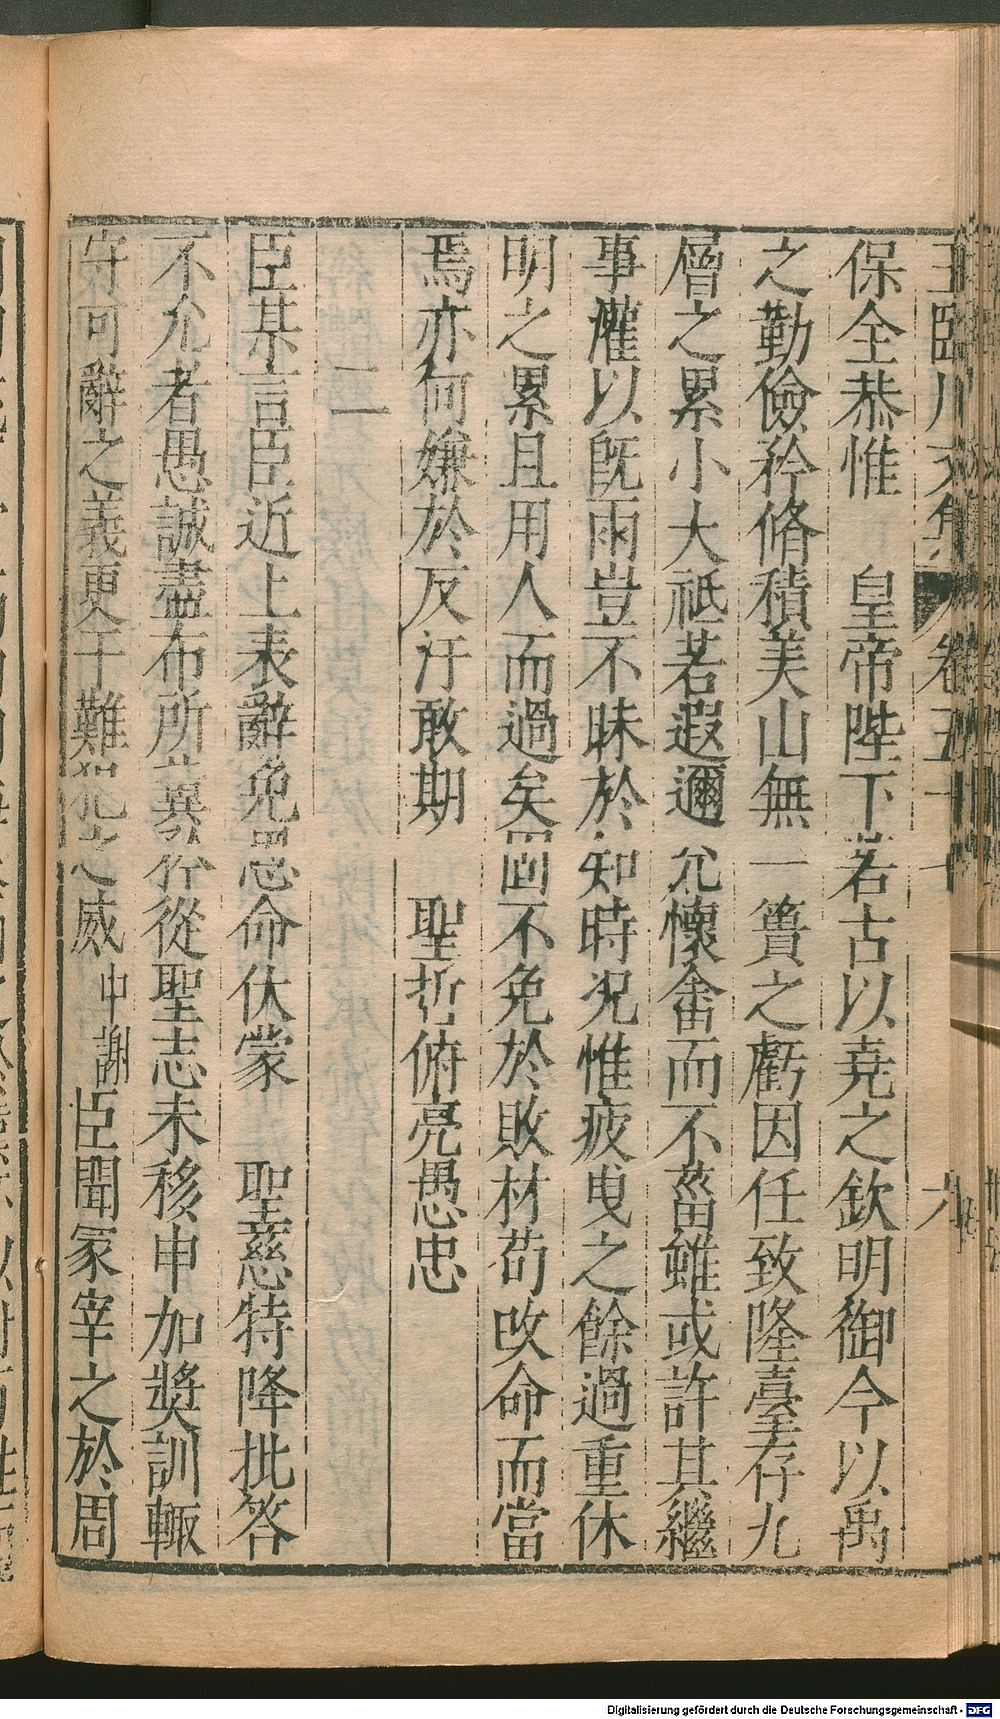 王臨川文集 卷五十 六
保全恭惟 皇帝陛下若古以堯之欽明御今以禹
之勤儉矜脩積美山無一簣之虧因任致隆臺存九
層之累小大祗若遐邇允懷畬而不菑雖或許其繼
事灌以旣雨豈不昧於知時況惟疲曳之餘過重休
明之累且用人而過矣固不免於敗材苟改命而當
焉亦何嫌於反汗敢期 聖哲俯亮愚忠
二
臣某言臣近上表辭免恩命伏蒙 聖慈特降批答
不允者愚誠盡布所冀矜從聖志未移申加奬訓輙
守可辭之義更干難犯之威中謝臣聞冢宰之於周
Digitalisierung gefördert durch die Deutsche Forschungsgemeinschaft - DFG